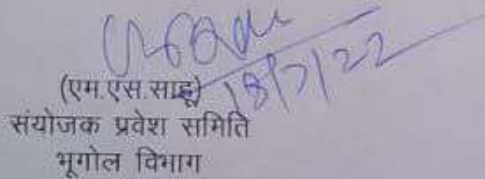 18/7/22
(एम.एस.साहू)
संयोजक प्रवेश समिति
भूगोल विभाग